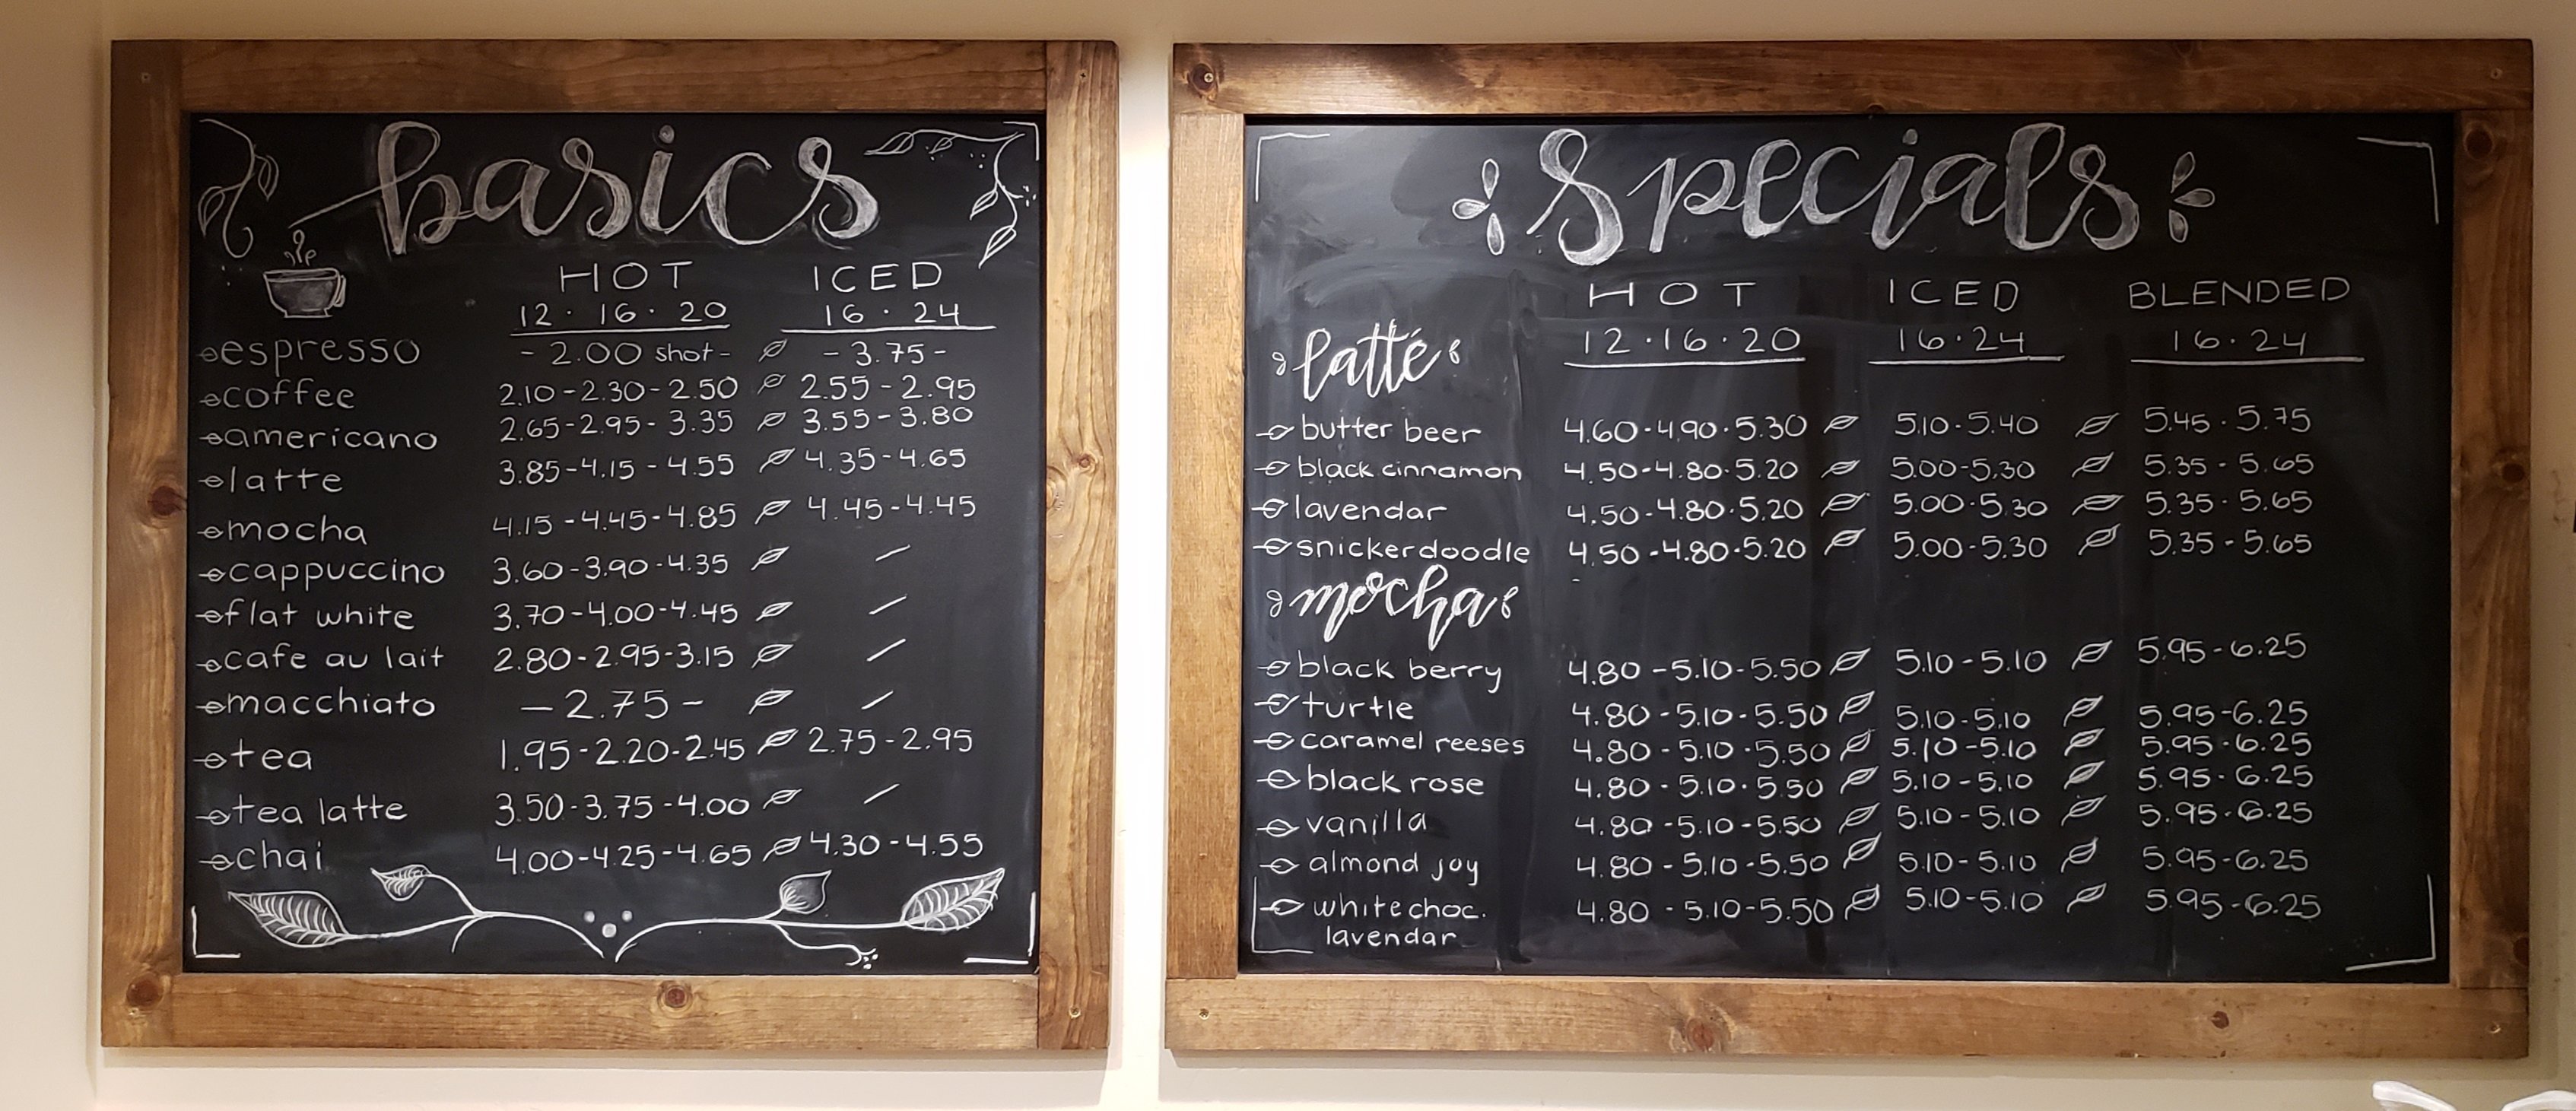 basics
HOT ICED
12 · 16 · 20 16 · 24
espresso - 2.00 shot - - 3.75 -
coffee 2.10 - 2.30 - 2.50 2.55 - 2.95
americano 2.65 - 2.95 - 3.35 3.55 - 3.80
latte 3.85 - 4.15 - 4.55 4.35 - 4.65
mocha 4.15 - 4.45 - 4.85 4.45 - 4.45
cappuccino 3.60 - 3.90 - 4.35 /
flat white 3.70 - 4.00 - 4.45 /
cafe au lait 2.80 - 2.95 - 3.15 /
macchiato - 2.75 - /
tea 1.95 - 2.20 - 2.45 2.75 - 2.95
tea latte 3.50 - 3.75 - 4.00 /
chai 4.00 - 4.25 - 4.65 4.30 - 4.55
Specials
HOT ICED BLENDED
12 · 16 · 20 16 · 24 16 · 24
latté
butter beer 4.60 - 4.90 · 5.30 5.10 - 5.40 5.45 · 5.75
black cinnamon 4.50 - 4.80 · 5.20 5.00 - 5.30 5.35 - 5.65
lavendar 4.50 - 4.80 · 5.20 5.00 - 5.30 5.35 - 5.65
snickerdoodle 4.50 - 4.80 · 5.20 5.00 - 5.30 5.35 - 5.65
mocha
black berry 4.80 - 5.10 - 5.50 5.10 - 5.10 5.95 - 6.25
turtle 4.80 - 5.10 - 5.50 5.10 - 5.10 5.95 - 6.25
caramel reeses 4.80 - 5.10 · 5.50 5.10 - 5.10 5.95 - 6.25
black rose 4.80 - 5.10 · 5.50 5.10 - 5.10 5.95 - 6.25
vanilla 4.80 - 5.10 - 5.50 5.10 - 5.10 5.95 - 6.25
almond joy 4.80 - 5.10 - 5.50 5.10 - 5.10 5.95 - 6.25
white choc. 4.80 - 5.10 - 5.50 5.10 - 5.10 5.95 - 6.25
lavendar